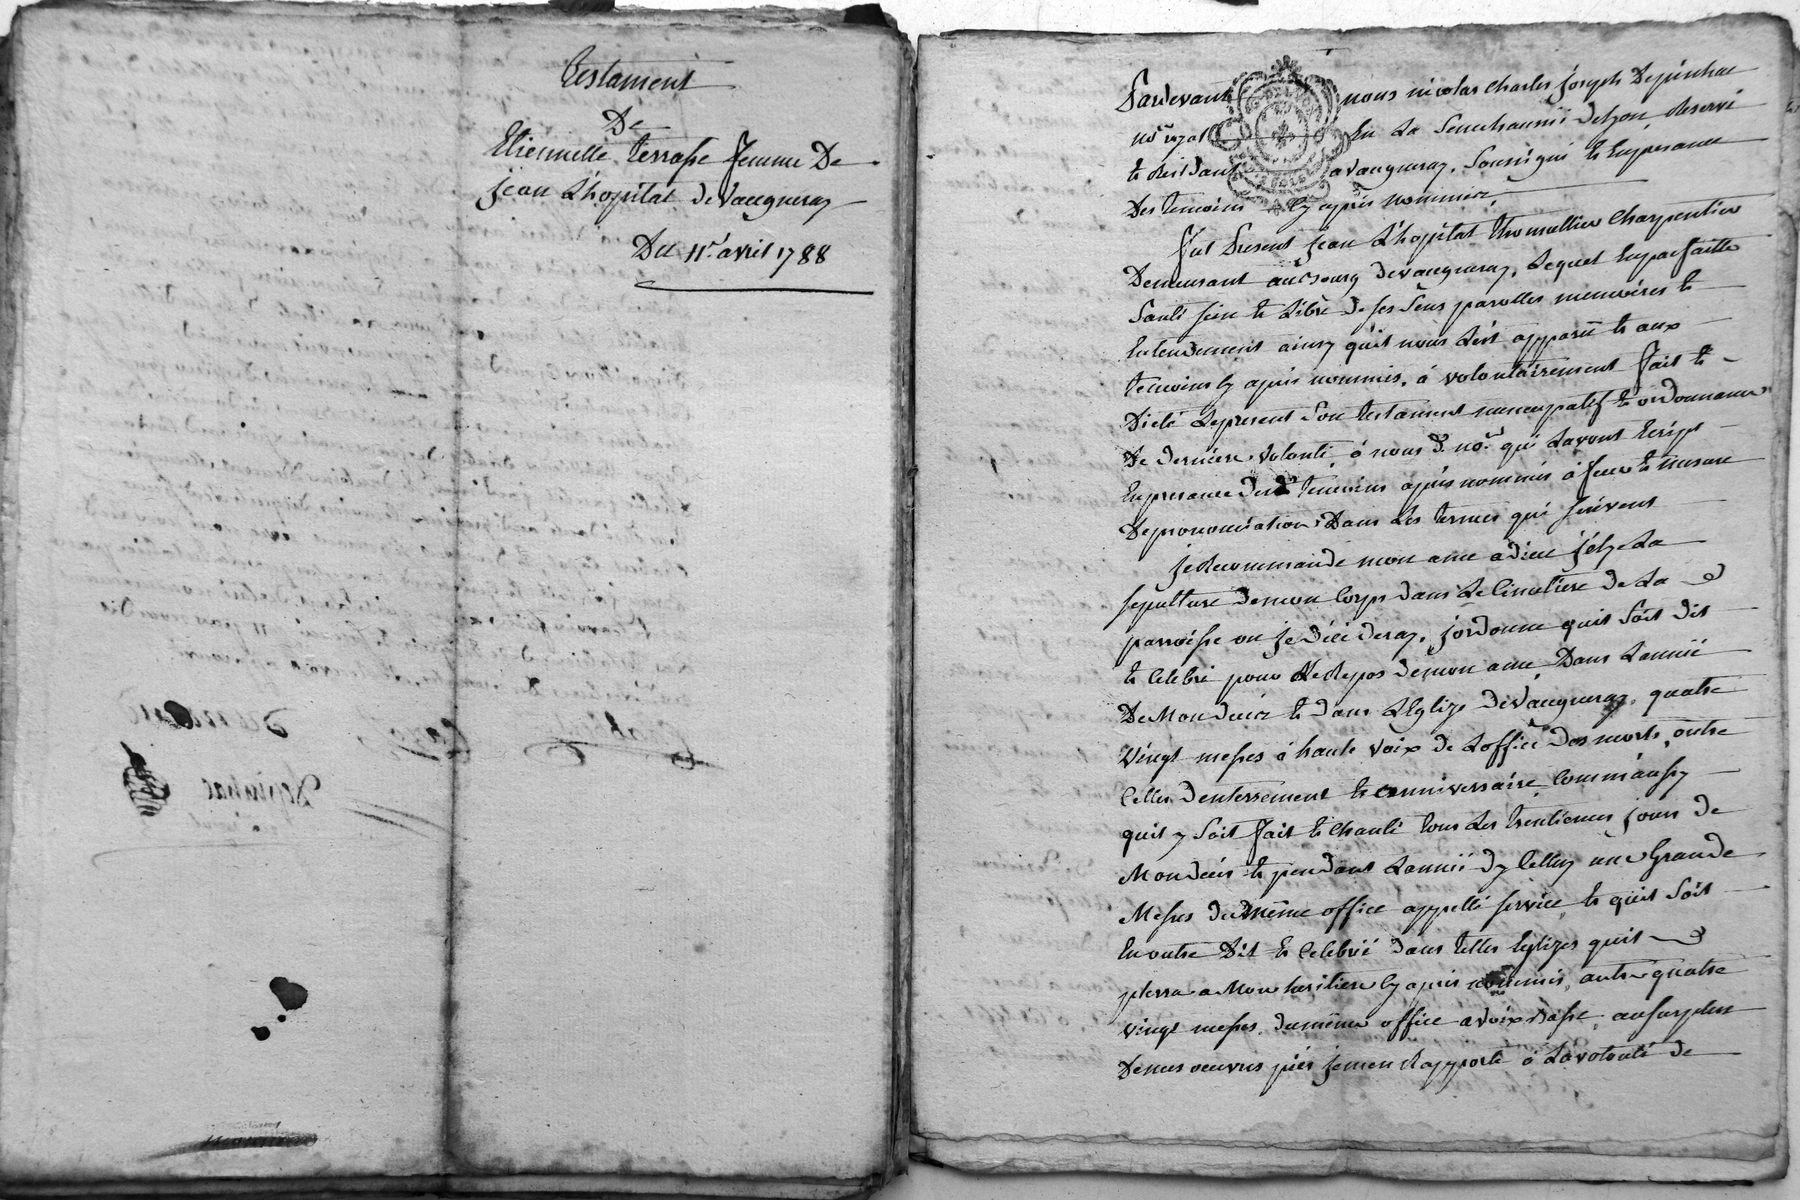 Testament
De
Etiennette terrasse femme De
jean L'hopital de Vaugneray
Du 11e. avril 1788
Pardevant nous nicolas charles joseph Depinhac
nore. royal En La Senechaussée Delyon Reservé
et Resident a Vaugneray, Soussigné et En presance
Des temoins Cy après nommez,
fut Present jean L'hopital thomallier Charpentier
Demeurant au Bourg de vaugneray, Lequel En parfaitte
Santé sein et Libre de ses Sens parolles memoires et
Entendement ainsy qu'il nous L'est apparu et aux
temoins Cy après nommés, á volontairement fait et
Dicté Le present Son testament nuncupatif et ordonnance
De derniere volonté, á nous d. nore. qui Lavont Ecript
En presance desd. temoins après nommés á feur et mesure
De prononciation Dans Les termes qui suivent
je Recommande mon ame a dieu j'elis La
sepulture de mon Corps dans Le Cimetiere de La
parroisse ou je décederay, j'ordonne quil Soit dit
et Celebré pour Le Repos de mon ame Dans Lannée
De Mon deces et dans L'Eglize de Vaugneray, quatre
Vingt messes á haute Voix de Loffice des morts, outre
Celles d'enterrement et anniversaire, Comm'aussy
quil y Soit fait et Chanté tous Les trentiemes jours de
Mon décès et pendant Lannée dy Celluy une Grande
Messes du même office appellé service, et quil Soit
En outre Dit et Celebré dans telles Eglizes quil
plerra a Mon heritiere Cy après nommée, autre quatre
vingt messes du même office a voix Basse, au surplus
De mes oeuvres pies je men Rapporte á La volonté de